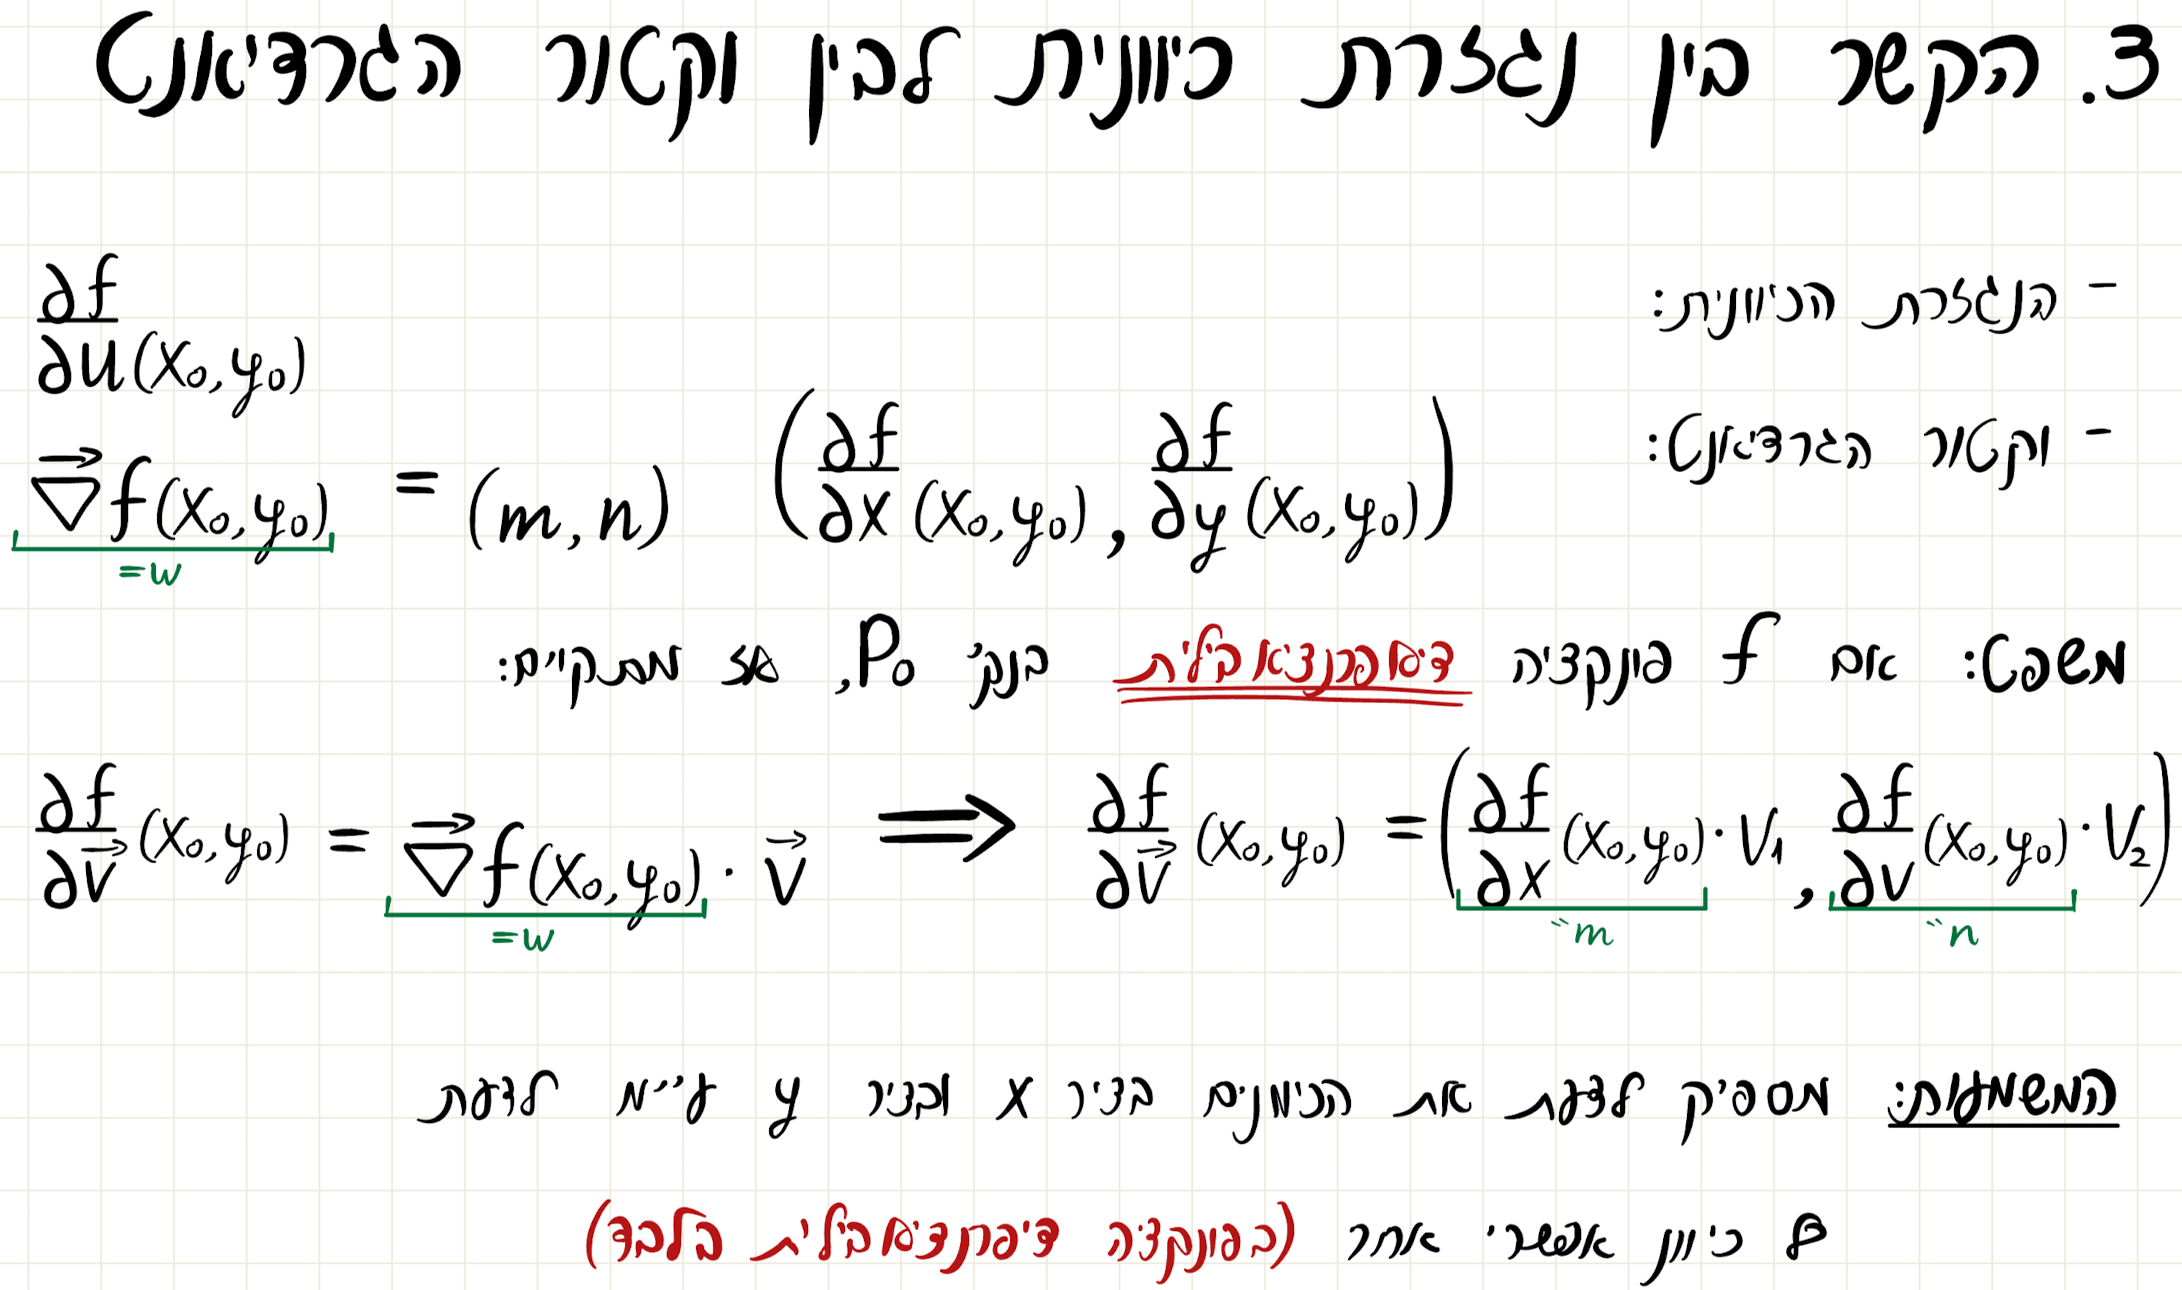 3. הקשר בין נגזרת כיוונית לבין וקטור הגרדיאנט
- הנגזרת הכיוונית: ∂f/∂u(x₀,y₀)
- וקטור הגרדיאנט: ∇⃗f(x₀,y₀) = (m,n) (∂f/∂x(x₀,y₀), ∂f/∂y(x₀,y₀))
=w
משפט: אם f פונקציה דיאפרנציאבילית בנק' P₀, אז מתקיים:
∂f/∂v⃗(x₀,y₀) = ∇⃗f(x₀,y₀)·v⃗ ⟹ ∂f/∂v⃗(x₀,y₀) = (∂f/∂x(x₀,y₀)·V₁, ∂f/∂v(x₀,y₀)·V₂)
=w "m "n
המשמעות: מספיק לדעת את הכיוונים בציר x ובציר y ע״מ לדעת
כל כיוון אפשרי אחר (בפונקציה דיפרנציאבילית בלבד)